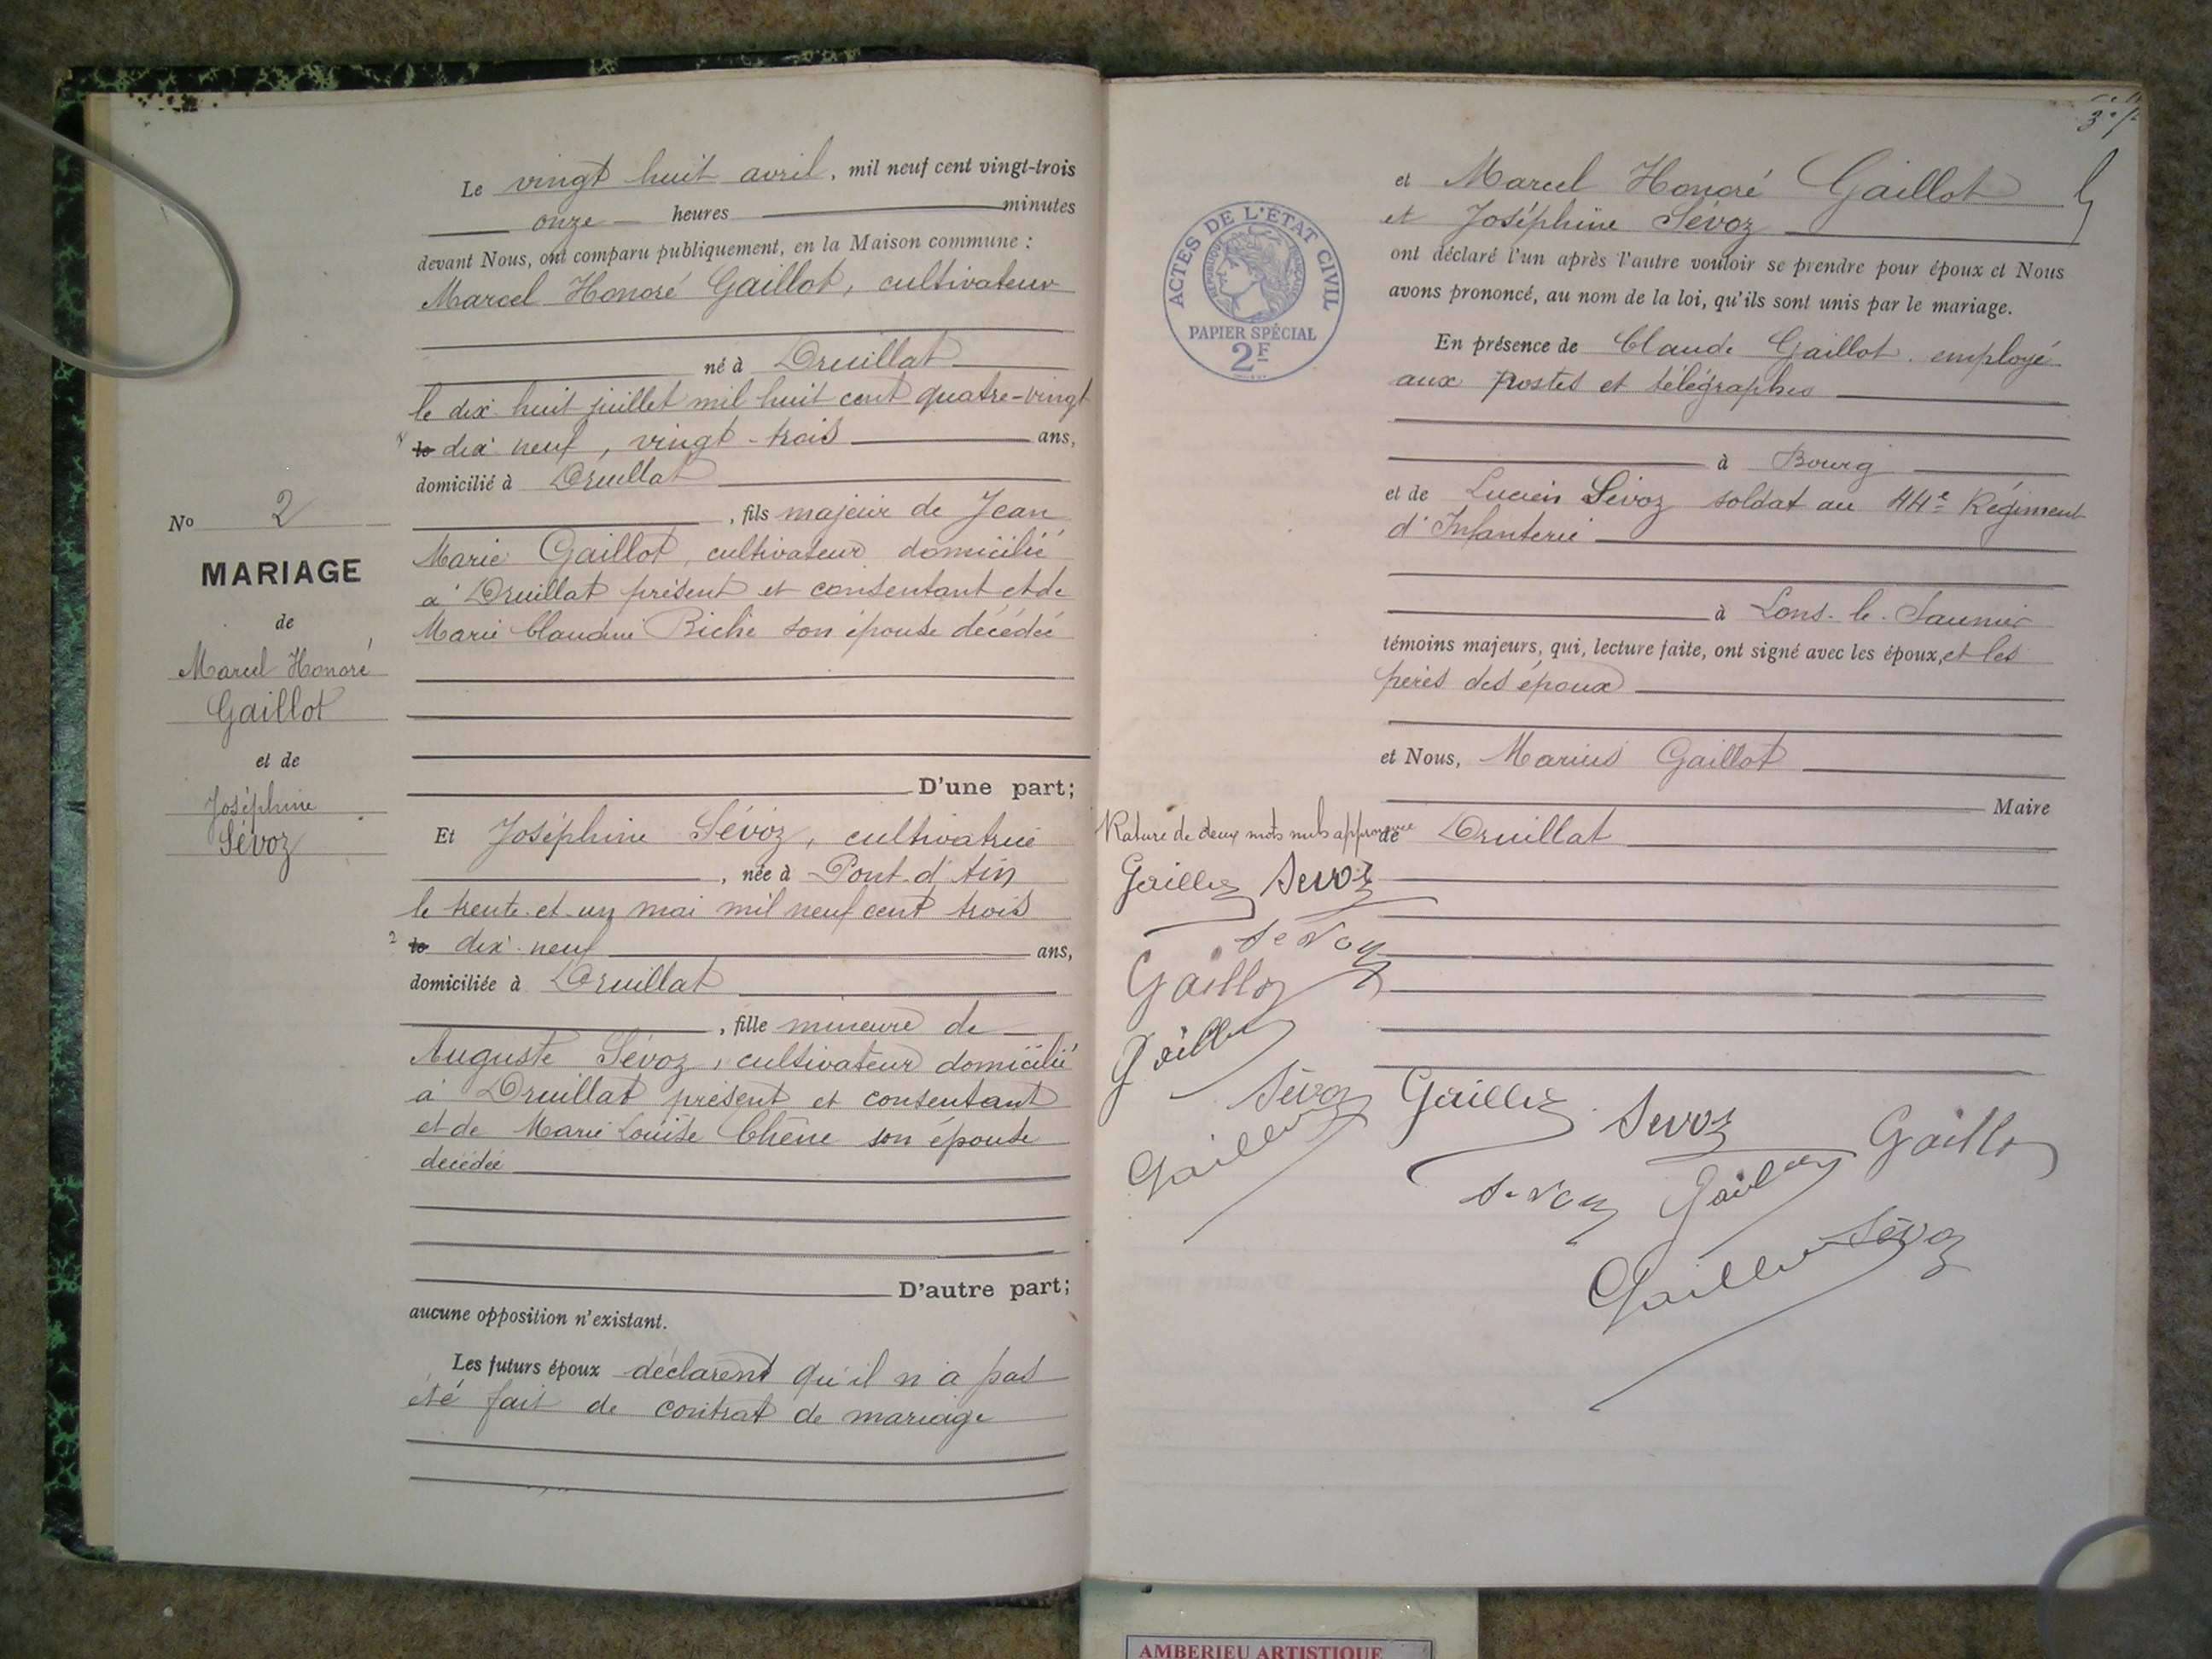 Le vingt huit avril, mil neuf cent vingt-trois
onze heures minutes
devant Nous, ont comparu publiquement, en la Maison commune :
Marcel Honoré Gaillot, cultivateur
né à Druillat
le dix huit juillet mil huit cent quatre-vingt
le dix neuf, vingt-trois ans,
domicilié à Druillat
, fils majeur de Jean
Marie Gaillot, cultivateur domicilié
à Druillat présent et consentant et de
Marie Claudine Riche son épouse décédée
D'une part;
No 2
MARIAGE
de
Marcel Honoré
Gaillot
et de
Joséphine
Sévoz
Et Joséphine Sévoz, cultivatrice
, née à Pont d'Ain
le trente et un mai mil neuf cent trois
2 le dix neuf ans,
domiciliée à Druillat
, fille mineure de
Auguste Sévoz, cultivateur domicilié
à Druillat présent et consentant
et de Marie Louise Chêne son épouse
décédée
D'autre part;
aucune opposition n'existant.
Les futurs époux déclarent qu'il n'a pas
été fait de contrat de mariage
et Marcel Honoré Gaillot
et Joséphine Sévoz
ont déclaré l'un après l'autre vouloir se prendre pour époux et Nous
avons prononcé, au nom de la loi, qu'ils sont unis par le mariage.
En présence de Claude Gaillot employé
aux postes et télégraphes
à Bourg
et de Lucien Sévoz soldat au 44e Régiment
d'Infanterie
à Lons-le-Saunier
témoins majeurs, qui, lecture faite, ont signé avec les époux, et les
pères des époux
et Nous, Marius Gaillot
Maire
de Druillat
ACTES DE L'ÉTAT CIVIL
RÉPUBLIQUE FRANÇAISE
PAPIER SPÉCIAL
2F
Rature de deux mots nuls
Gaillot Sevoz
Sevoz
Gaillot
Gaillot
Sévoz
Gaillot
Gaillot Sevoz Gaillot
Sevoz Gaillot
Gaillot Sévoz
AMBERIEU ARTISTIQUE